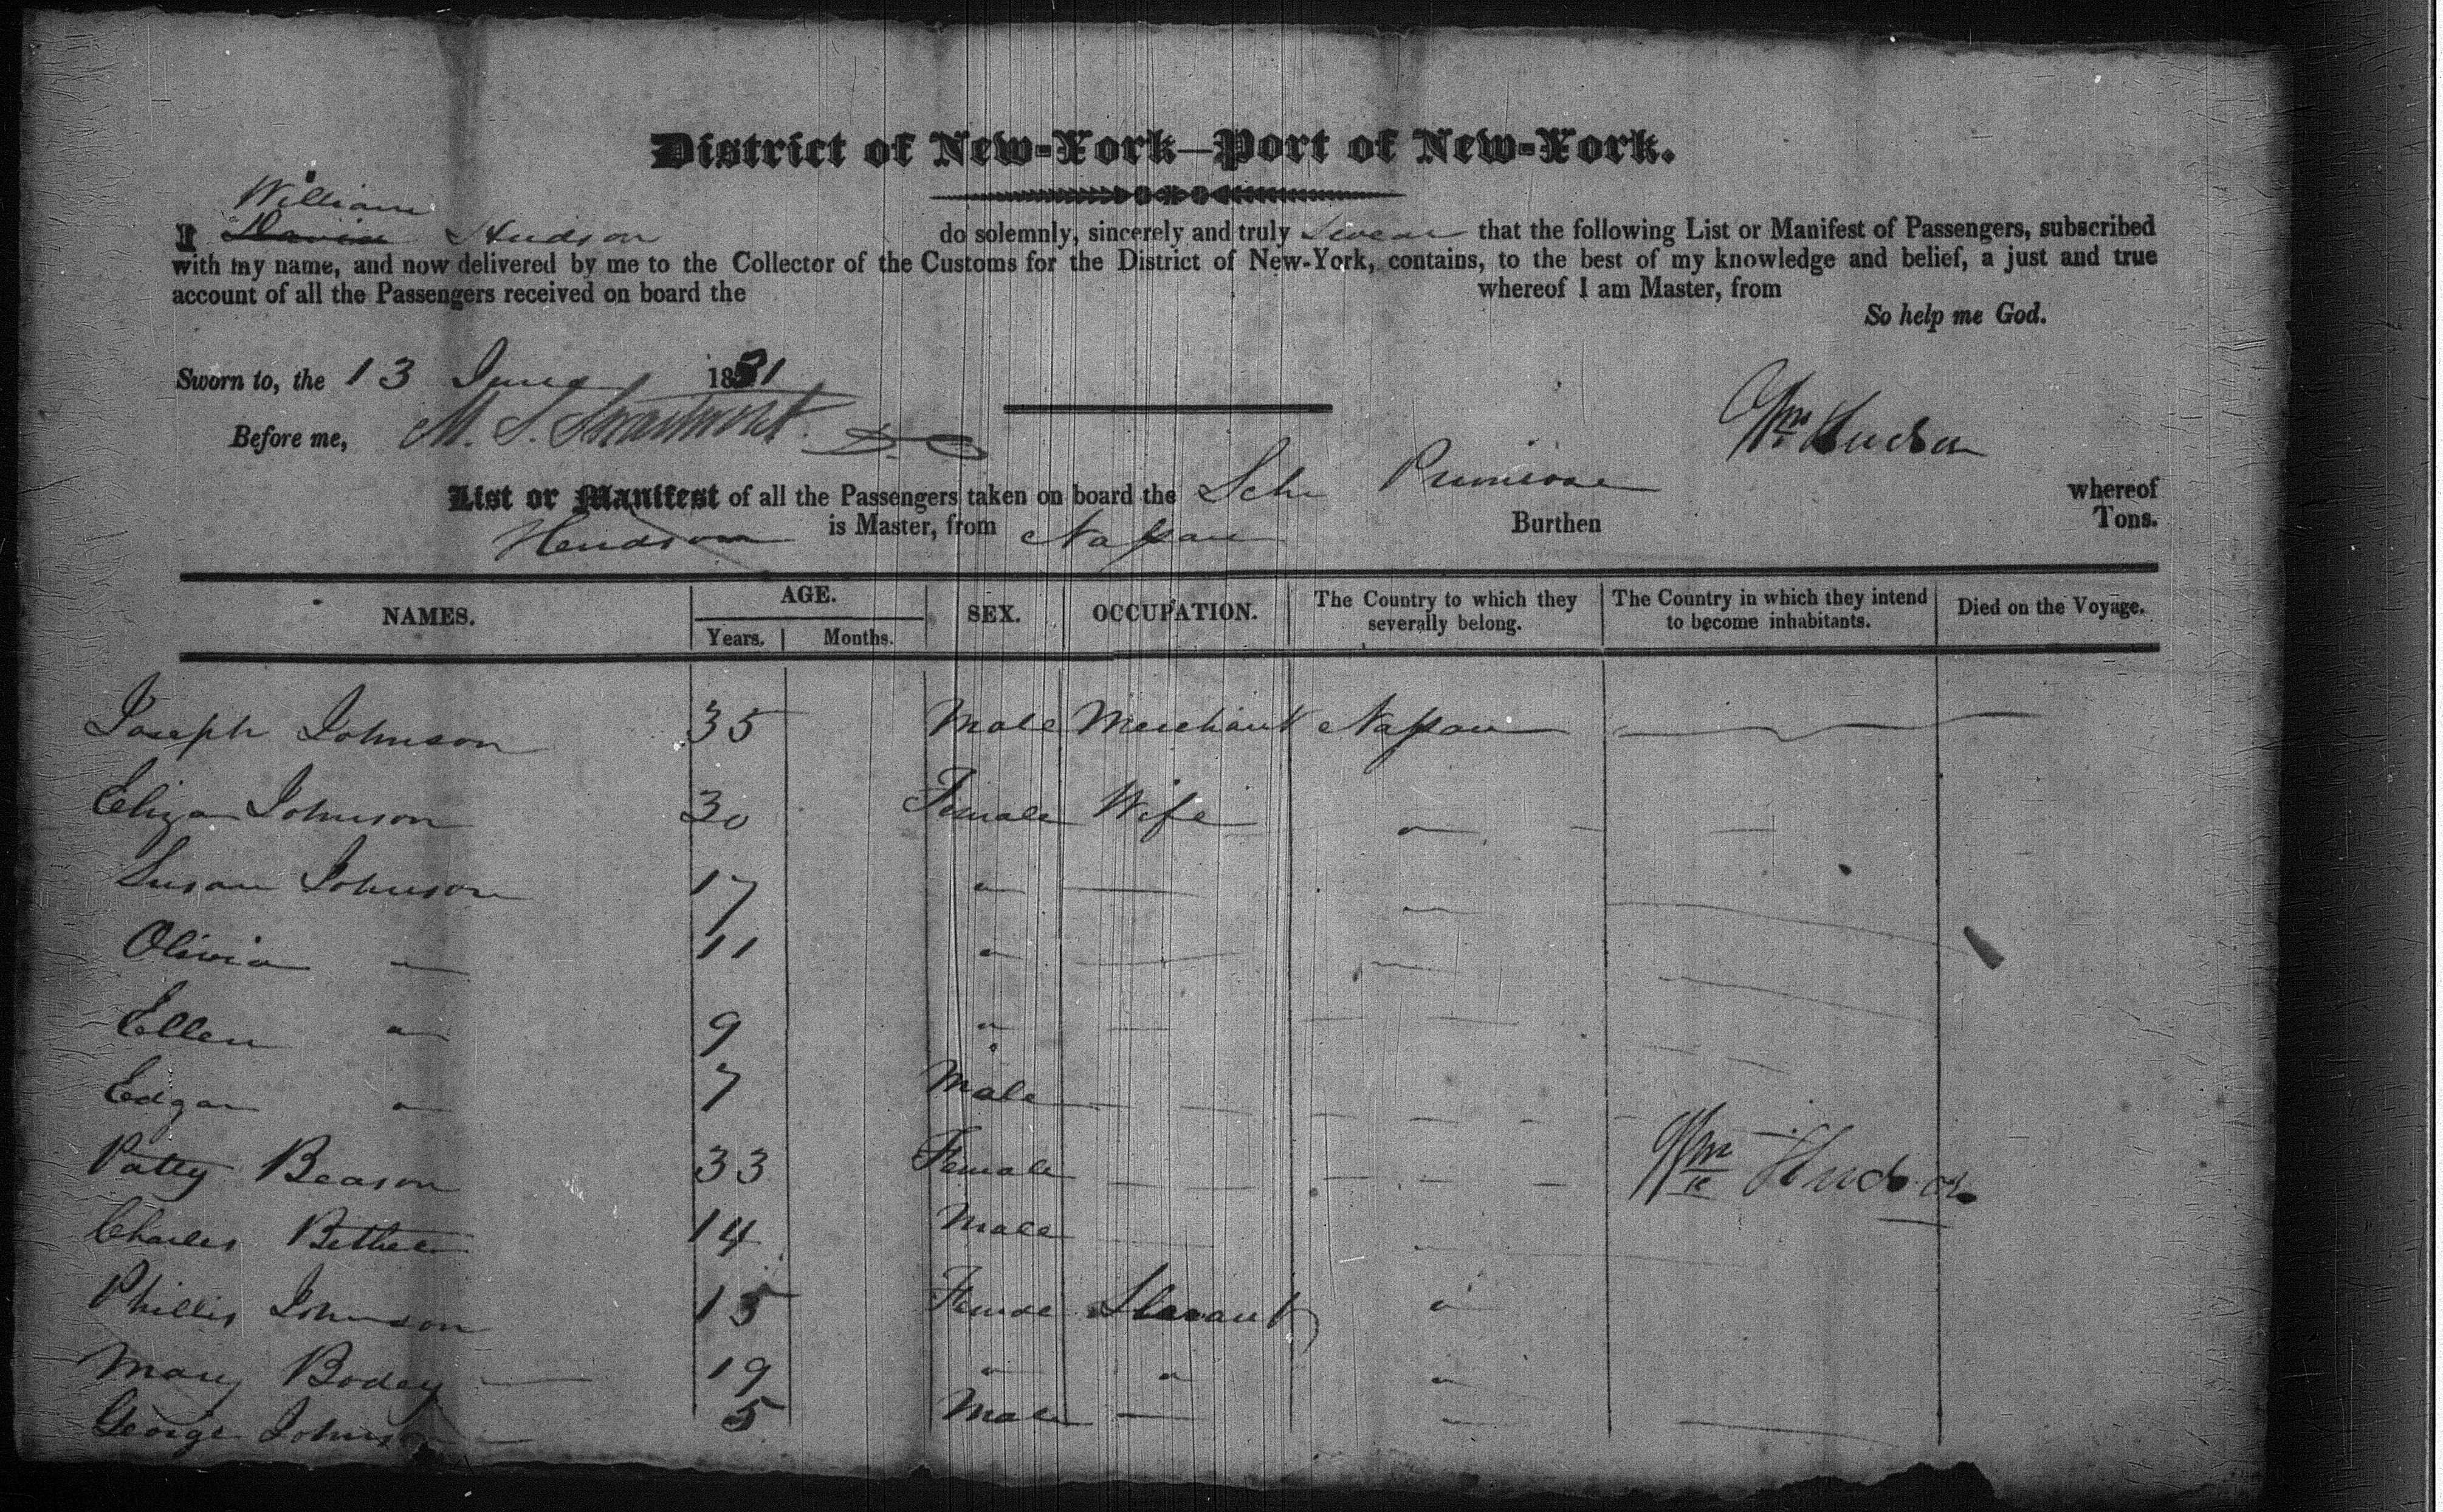 District of New-York—Port of New-York.
William
I David Hudson do solemnly, sincerely and truly Swear that the following List or Manifest of Passengers, subscribed
with my name, and now delivered by me to the Collector of the Customs for the District of New-York, contains, to the best of my knowledge and belief, a just and true
account of all the Passengers received on board the whereof I am Master, from
So help me God.
Sworn to, the 13 June 1831
Before me, M. S. Swartwout D. C
Wm Hudson
List or Manifest of all the Passengers taken on board the Schr Primrose whereof
Hudson is Master, from Nassau Burthen Tons.
NAMES. AGE. Years. Months. SEX. OCCUPATION. The Country to which they severally belong. The Country in which they intend to become inhabitants. Died on the Voyage.
Joseph Johnson 35 Male Merchant Nassau
Eliza Johnson 30 Female Wife "
Susan Johnson 17 "
Olivia " 11 "
Ellen " 9 "
Edgar " 7 Male
Patty Beason 33 Female
Wm Hudson
Charles Bethel 14 Male
Phillis Johnson 15 Female Servant "
Mary Bodey 19 " " "
George Johnson 5 Male